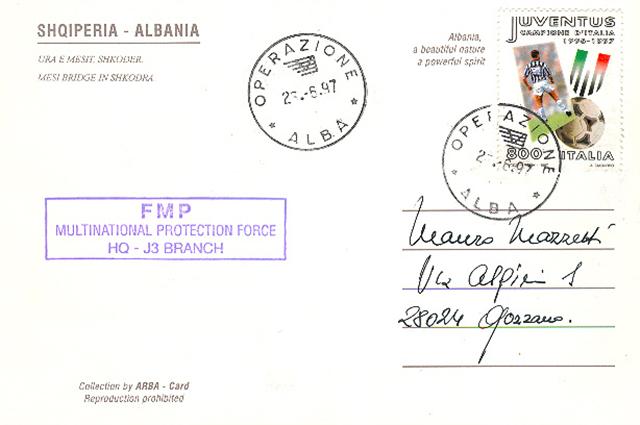 SHQIPERIA - ALBANIA
URA E MESIT, SHKODER.
MESI BRIDGE IN SHKODRA
OPERAZIONE
2 -6.97
* ALBA *
Albania,
a beautiful nature
a powerful spirit
JUVENTUS
CAMPIONE D'ITALIA
1996-1997
800 ITALIA
OPERAZIONE
2 -6.97
* ALBA *
FMP
MULTINATIONAL PROTECTION FORCE
HQ - J3 BRANCH
Mauro Mazzetti
Via Alpini 1
28024 Gozzano.
Collection by ARBA - Card
Reproduction prohibited